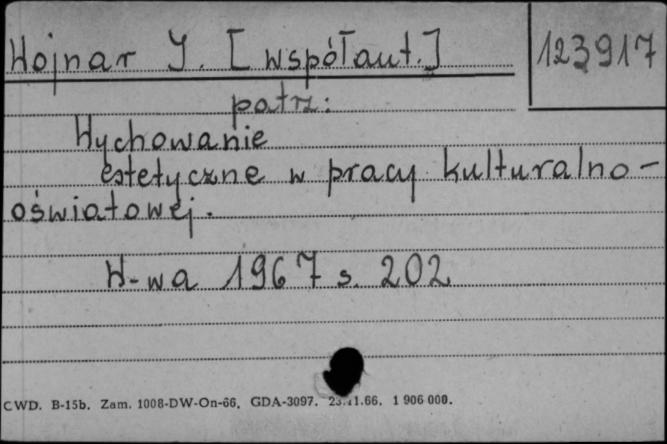 Wojnar I. [współaut.]
123917
patrz:
Wychowanie
estetyczne w pracy kulturalno-
oświatowej.
W-wa 1967 s. 202
CWD. B-15b. Zam. 1008-DW-On-66. GDA-3097. 23.11.66. 1 906 000.